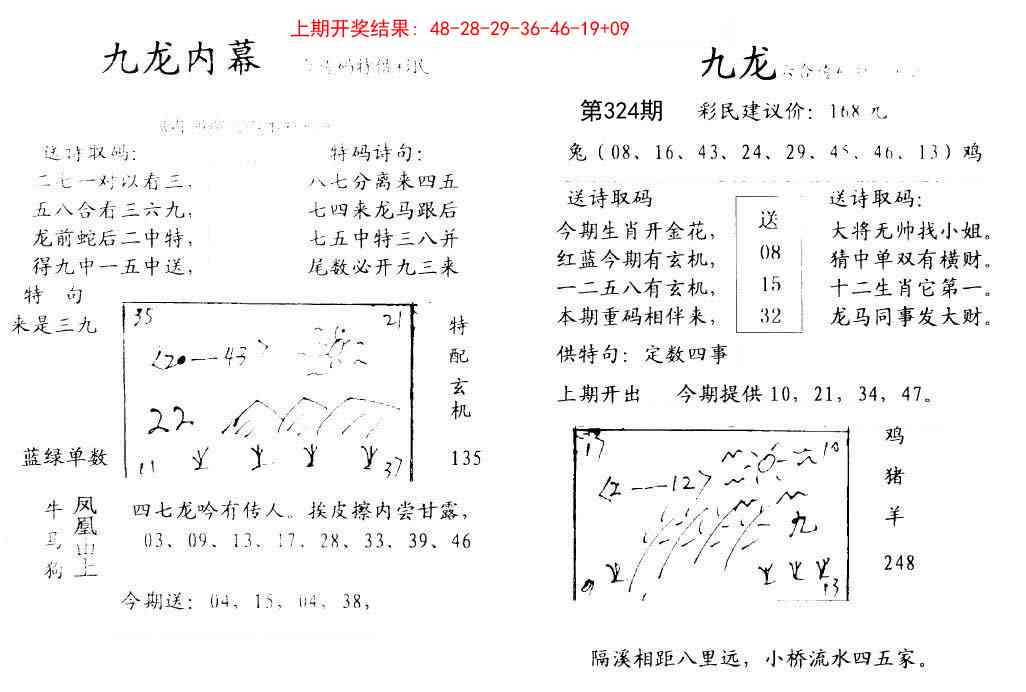 上期开奖结果：48-28-29-36-46-19+09
九龙内幕
送诗取码：
二七一对以看三，
五八合看三六九，
龙前蛇后二中特，
得九中一五中送，
特码诗句：
八七分离来四五
七四来龙马跟后
七五中特三八并
尾数必开九三来
特 句
来是三九
35
21
<20—43>
22
11
37
特
配
玄
机
蓝绿单数
135
牛
马
狗
凤
凰
山
上
四七龙吟有传人。挨皮擦内尝甘露，
03、09、13、17、28、33、39、46
今期送：04，15，04，38，
九龙
第324期
彩民建议价：168元
兔（08、16、43、24、29、45、46、13）鸡
送诗取码
今期生肖开金花，
红蓝今期有玄机，
一二五八有玄机，
本期重码相伴来，
送
08
15
32
送诗取码：
大将无帅找小姐。
猜中单双有横财。
十二生肖它第一。
龙马同事发大财。
供特句：定数四事
上期开出
今期提供10，21，34，47。
17
10
<2—12>
九
13
鸡
猪
羊
248
隔溪相距八里远，小桥流水四五家。